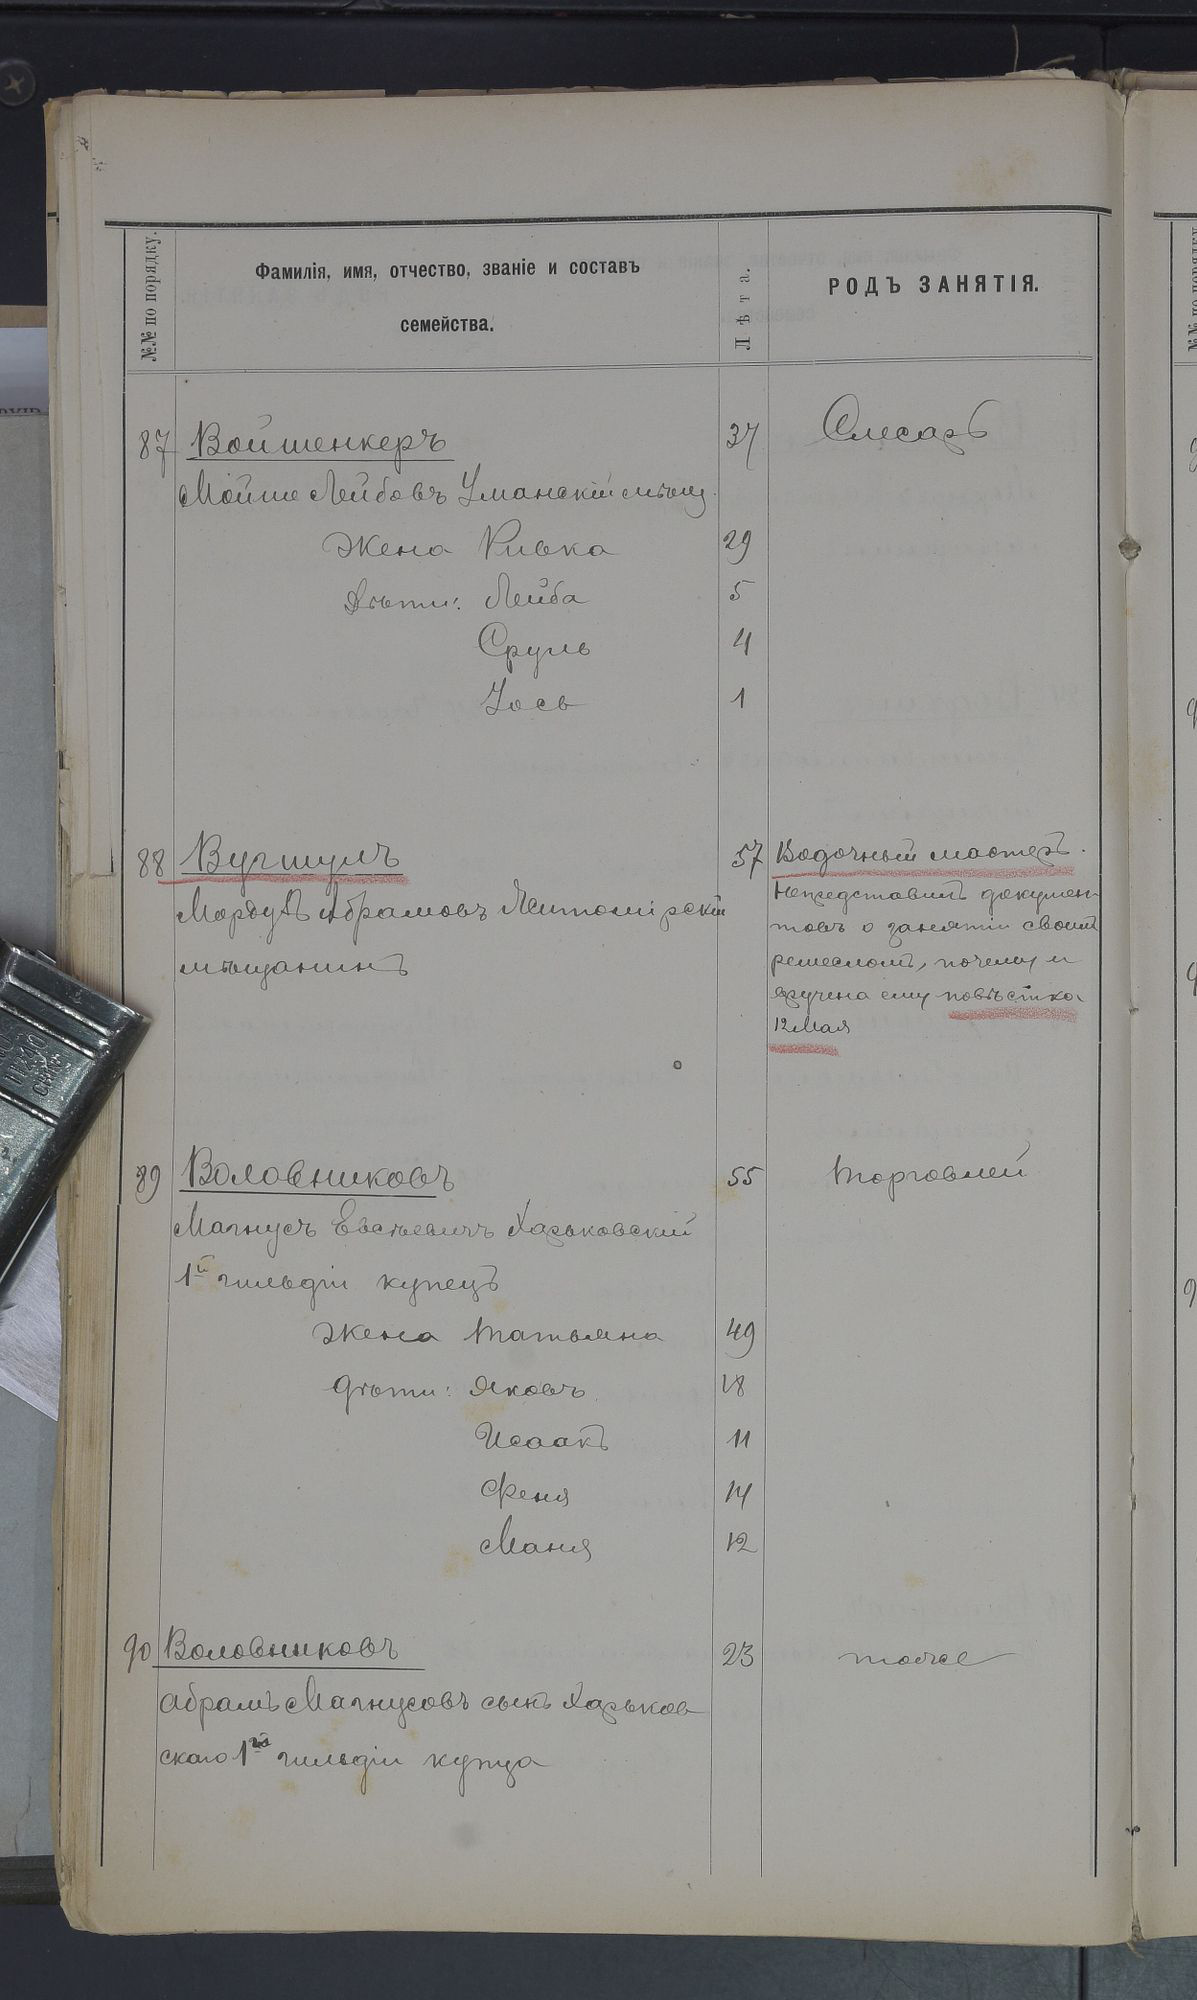 №№ по порядку.
Фамилія, имя, отчество, званіе и составъ
семейства.
Лѣта.
РОДЪ ЗАНЯТІЯ.
87 Войшенкеръ 37 Слесарь
Мойше Лейбовъ Уманскій мѣщ.
Жена Ривка 29
Дѣти: Лейба 5
Сруль 4
Іось 1
88 57 Водочный мастеръ.
Абрамовъ Житомірскій
мѣщанинъ
Непредставилъ докумен
товъ о занятіи своимъ
ремесломъ, почему и
вручена ему повѣстка
12 Мая
89 Воловниковъ 55 Торговлей
Магнусъ Евсѣевичъ Харьковскій
1й гильдіи купецъ
Жена Татьяна 49
Дѣти: Яковъ 18
Исаакъ 11
Феня 14
Маня 12
90 Воловниковъ 23 тоже
Абрамъ Магнусовъ сынъ Харьков
скаго 1й гильдіи купца